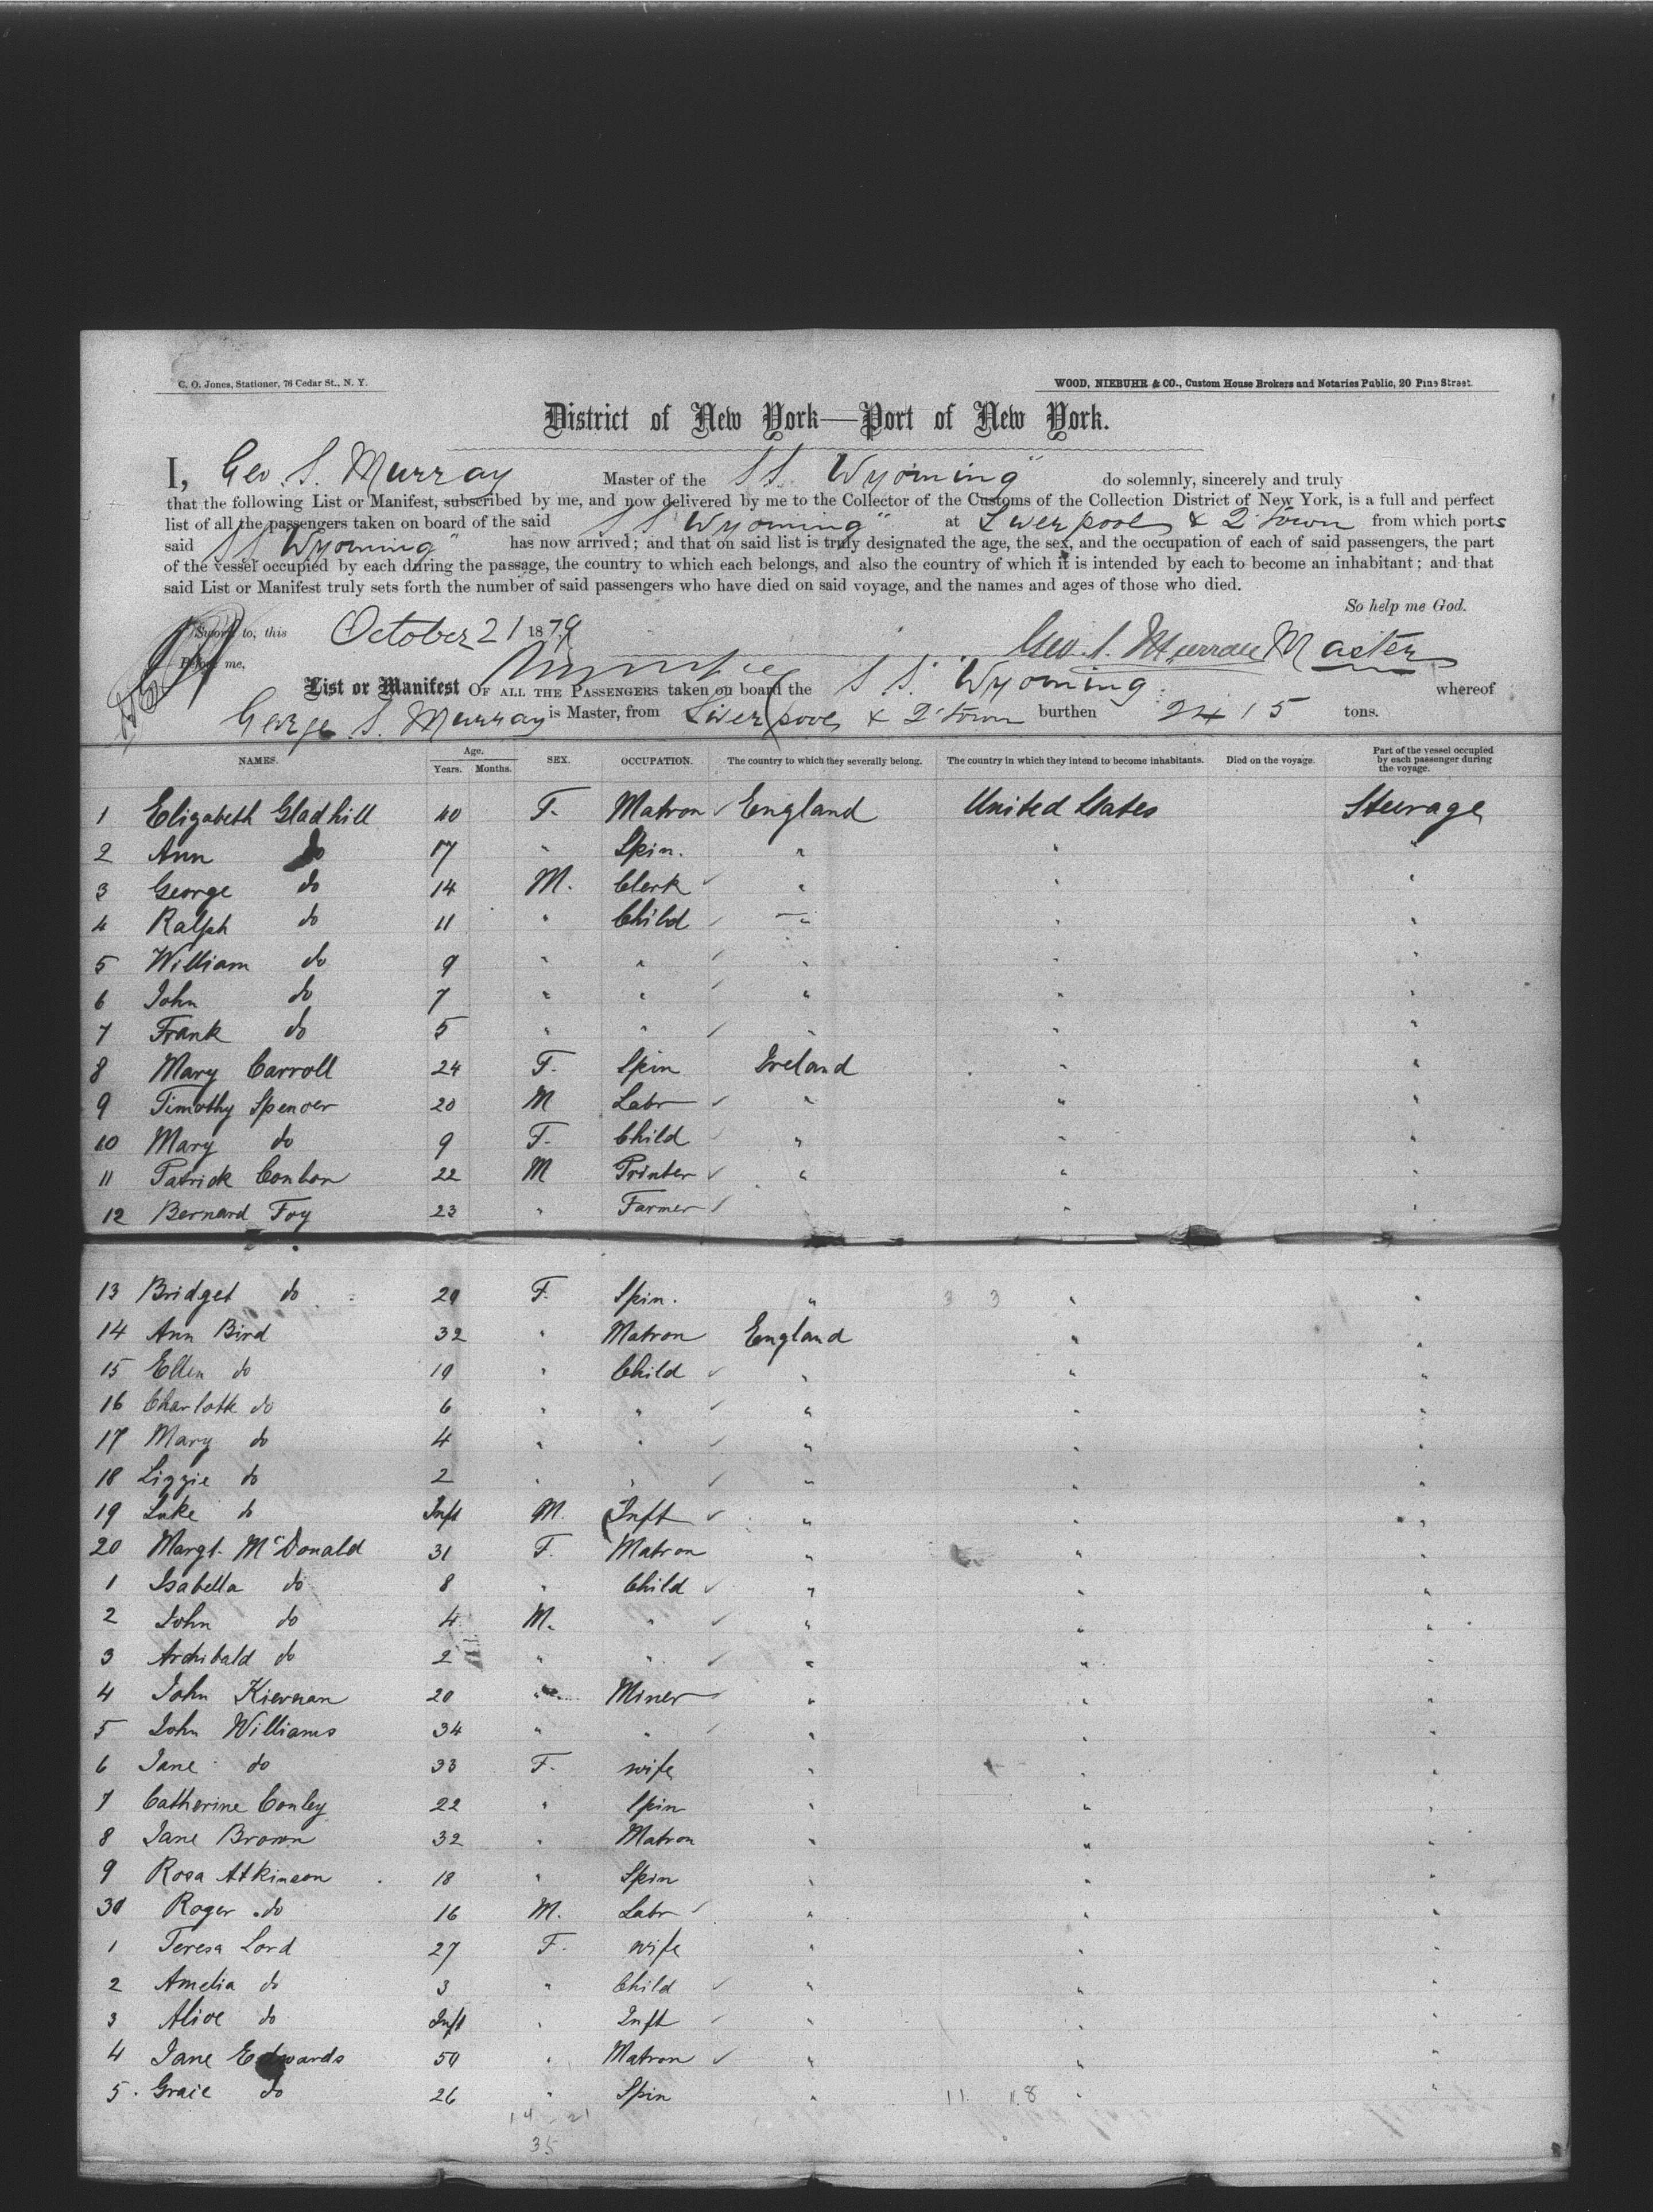 C. O. Jones, Stationer, 76 Cedar St., N. Y.
WOOD, NIEBUHR & CO., Custom House Brokers and Notaries Public, 20 Pine Street.
District of New York—Port of New York.
I, Geo. S. Murray Master of the S S. "Wyoming" do solemnly, sincerely and truly
that the following List or Manifest, subscribed by me, and now delivered by me to the Collector of the Customs of the Collection District of New York, is a full and perfect
list of all the passengers taken on board of the said S S "Wyoming" at Liverpool & Q'town from which ports
said S S "Wyoming" has now arrived; and that on said list is truly designated the age, the sex, and the occupation of each of said passengers, the part
of the vessel occupied by each during the passage, the country to which each belongs, and also the country of which it is intended by each to become an inhabitant; and that
said List or Manifest truly sets forth the number of said passengers who have died on said voyage, and the names and ages of those who died.
So help me God.
Sworn to, this October 21 1879
Geo. S. Murray Master
Before me,
List or Manifest OF ALL THE PASSENGERS taken on board the S S. Wyoming whereof
George S. Murray is Master, from Liverpool & Q'town burthen 2415 tons.
NAMES. Age. Years. Months. SEX. OCCUPATION. The country to which they severally belong. The country in which they intend to become inhabitants. Died on the voyage. Part of the vessel occupied by each passenger during the voyage.
1 Elizabeth Gladhill 40 F. Matron England United States Steerage
2 Ann do 17 " Spin. " " "
3 George do 14 M. Clerk " " "
4 Ralph do 11 " Child " " "
5 William do 9 " " " " "
6 John do 7 " " " " "
7 Frank do 5 " " " " "
8 Mary Carroll 24 F. Spin Ireland " "
9 Timothy Spencer 20 M Labr " " "
10 Mary do 9 F. Child " " "
11 Patrick Conlon 22 M Printer " " "
12 Bernard Foy 23 " Farmer " "
13 Bridget do 29 F. Spin. " 3 3 " "
14 Ann Bird 32 " Matron England " "
15 Ellen do 10 " Child " " "
16 Charlotte do 6 " " " " "
17 Mary do 4 " " " " "
18 Lizzie do 2 " " " " "
19 Luke do Inft M. Inft " " "
20 Margt. McDonald 31 F. Matron " " "
1 Isabella do 8 " Child " " "
2 John do 4 M. " " " "
3 Archibald do 2 " " " " "
4 John Kiernan 20 " Miner " " "
5 John Williams 34 " " " " "
6 Jane do 33 F. wife " " "
7 Catherine Conley 22 " Spin " " "
8 Jane Brown 32 " Matron " " "
9 Rosa Atkinson 18 " Spin " " "
30 Roger do 16 M. Labr " " "
1 Teresa Lord 27 F. wife " " "
2 Amelia do 3 " Child " " "
3 Alice do Inft " Inft " " "
4 Jane Edwards 50 " Matron " " "
5 Gracie do 26 " Spin " 11 118 " "
14 - 21
35